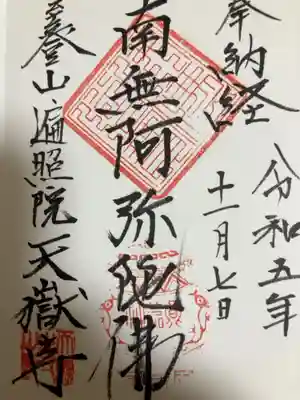 奉納経
令和五年
十一月七日
南無阿弥陀佛
登山遍照院天嶽寺